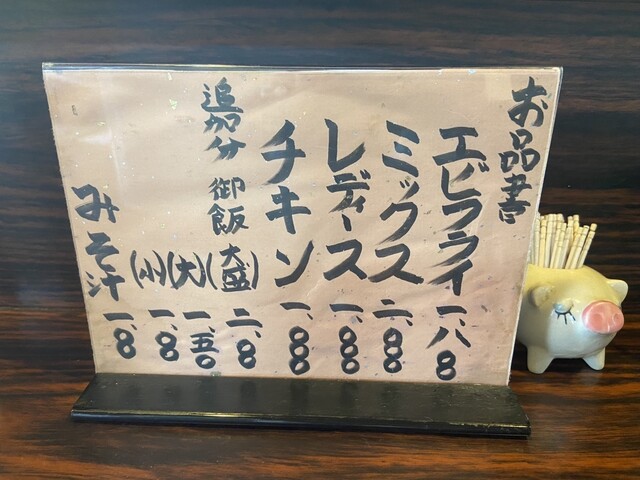 お品書
エビフライ 一、八〇〇
ミックス 二、〇〇〇
レディース 一、〇〇〇
チキン 一、〇〇〇
追加分 御飯 (大盛) 二〇〇
(大) 一五〇
(小) 一〇〇
みそ汁 一〇〇